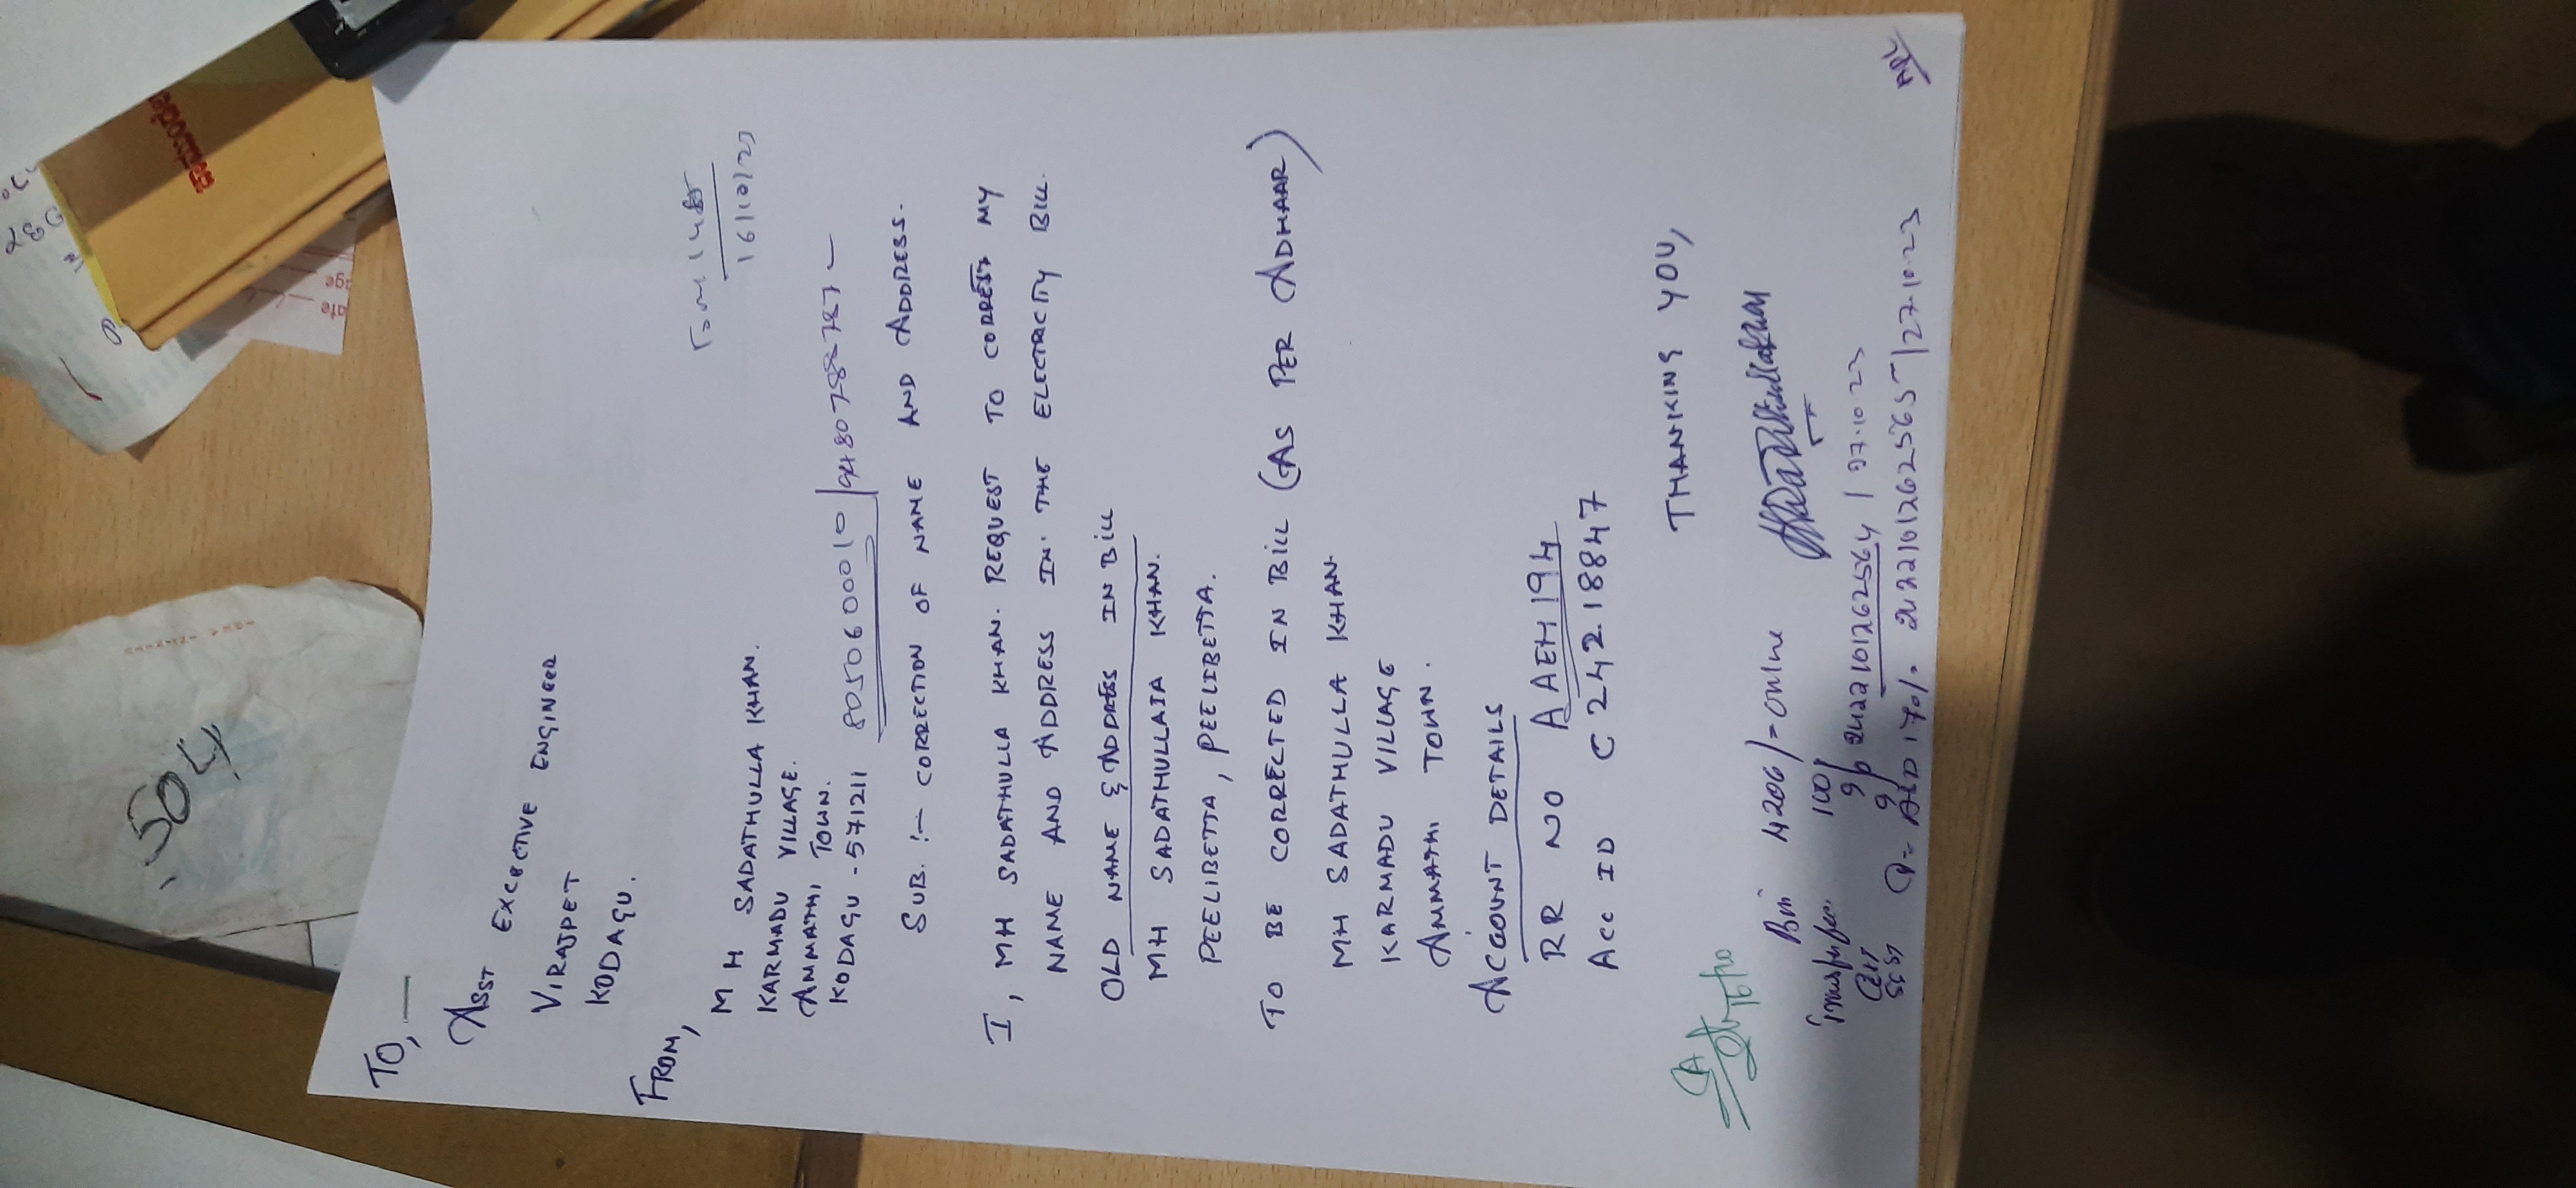 TO,
ASST EXCECTIVE ENGINEER
VIRAJPET
KODAGU.
FROM,
16/10/23
M H SADATHULLA KHAN.
KARMADU VILLAGE.
AMMATHI TOWN.
KODAGU - 571211 8050600010 /
SUB :- CORRECTION OF NAME AND ADDRESS.
I, MH SADATHULLA KHAN. REQUEST TO CORRECT MY
NAME AND ADDRESS IN THE ELECTRACITY BILL.
OLD NAME & ADDRESS IN BILL
MH SADATHULLAIA KHAN.
PEELIBETTA, PEELIBETTA.
TO BE CORRECTED IN BILL (AS PER ADHAAR)
MH SADATHULLA KHAN.
KARMADU VILLAGE
AMMATHI TOWN.
ACCOUNT DETAILS
RR NO AAEH194
Acc ID C 24218847
THANKING YOU,
Bill 4206/= online
100/
CGST 9%
SGST 9%
/27.10.23
504